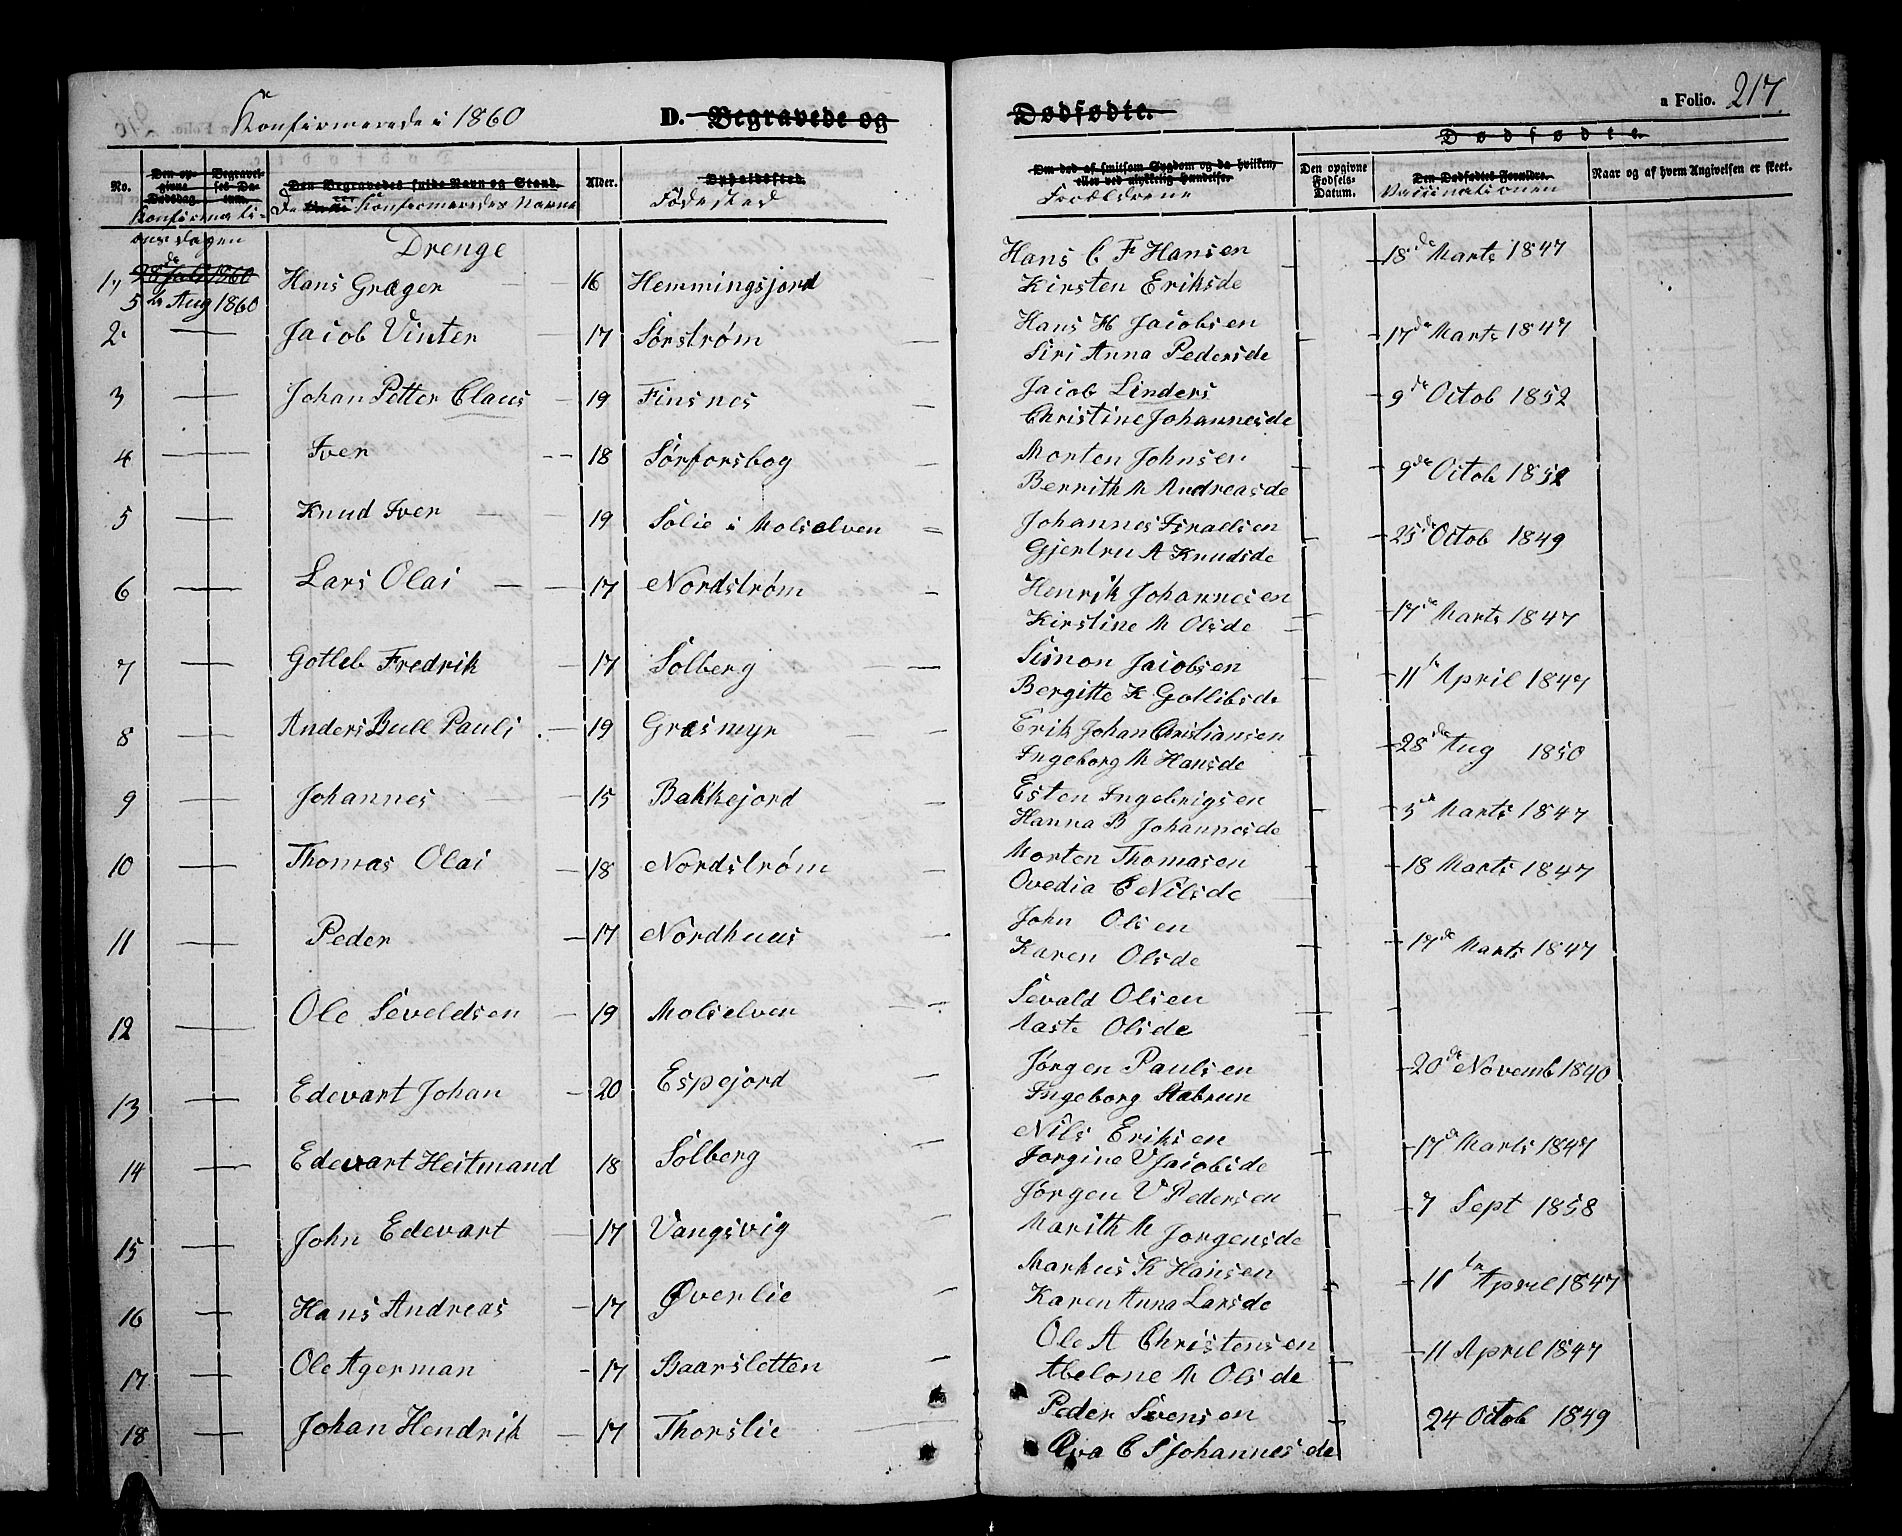 Konfirmerede i 1860 D. Begravede og Dødfødte. a Folio. 217.
No. Den opgivne Dødsdag. Begravelses-Datum. Den Begravedes fulde Navn og Stand. Alder. Opholdssted. Om død af smitsom Sygdom og da hvilken, eller ved ulykkelig Hændelse. Dødfødte.
Den opgivne Fødsels-Datum. Den Dødfødtes Forældre. Naar og af hvem Angivelsen er skeet.
Konfirmationsdagen De Konfirmeredes Navne Fødested Forældrene Vaccinationen
Drenge
1, 28de Juli 1860 5te Aug 1860 Hans Græger 16 Hemmingsjord Hans C F Hansen Kirsten Eriksde 18de Marts 1847
2 Jacob Vinter 17 Sørstrøm Hans H Jacobsen Siri Anna Pedersde 17de Marts 1847
3 Johan Petter Claus 19 Finsnes Jacob Linders Christine Johannesde 9de Octob 1852
4 Iver 18 Sørforsbog Morten Johnsen Berrith M Andreasde 9de Octob 1852
5 Knud Iver 19 Solie i Molselven Johannes Israelsen Gjertru A Knudsde 25de Octob 1849
6 Lars Olai 17 Nordstrøm Henrik Johannesen Kirstine M Olsde 17de Marts 1847
7 Gotleb Fredrik 17 Solberg Simon Jacobsen Bergitte K Gotlibsde 11te April 1847
8 Anders Bull Pauli 19 Græsmyr Erik Johan Christiansen Ingeborg M Hansde 28de Aug 1850
9 Johannes 15 Bakkejord Esten Ingebrigsen Hanna B Johannesde 5te Marts 1847
10 Thomas Olai 18 Nordstrøm Morten Thomasen Ovedia C Nilsde 18 Marts 1847
11 Peder 17 Nordhuus John Olsen Karen Olsde 17de Marts 1847
12 Ole Seveldsen 19 Molselven Sevald Olsen Aaste Olsde
13 Edevart Johan 20 Espejord Jørgen Paulsen Ingeborg 20de Novemb 1840
14 Edevart Heitmand 18 Solberg Nils Eriksen Jorgine V Jacobsde 17de Marts 1847
15 John Edevart 17 Vangsvig Jørgen V Pedersen Marith M Jorgensde 7 Sept 1858
16 Hans Andreas 17 Øverlie Markus K Hansen Karen Anna Larsde 11te April 1847
17 Ole Agerman 17 Baarsletten Ole A Christensen Abelone M Olsde 11 April 1847
18 Johan Hendrik 17 Thorslie Peder Svensen C S Johannesde 24 Octob 1849